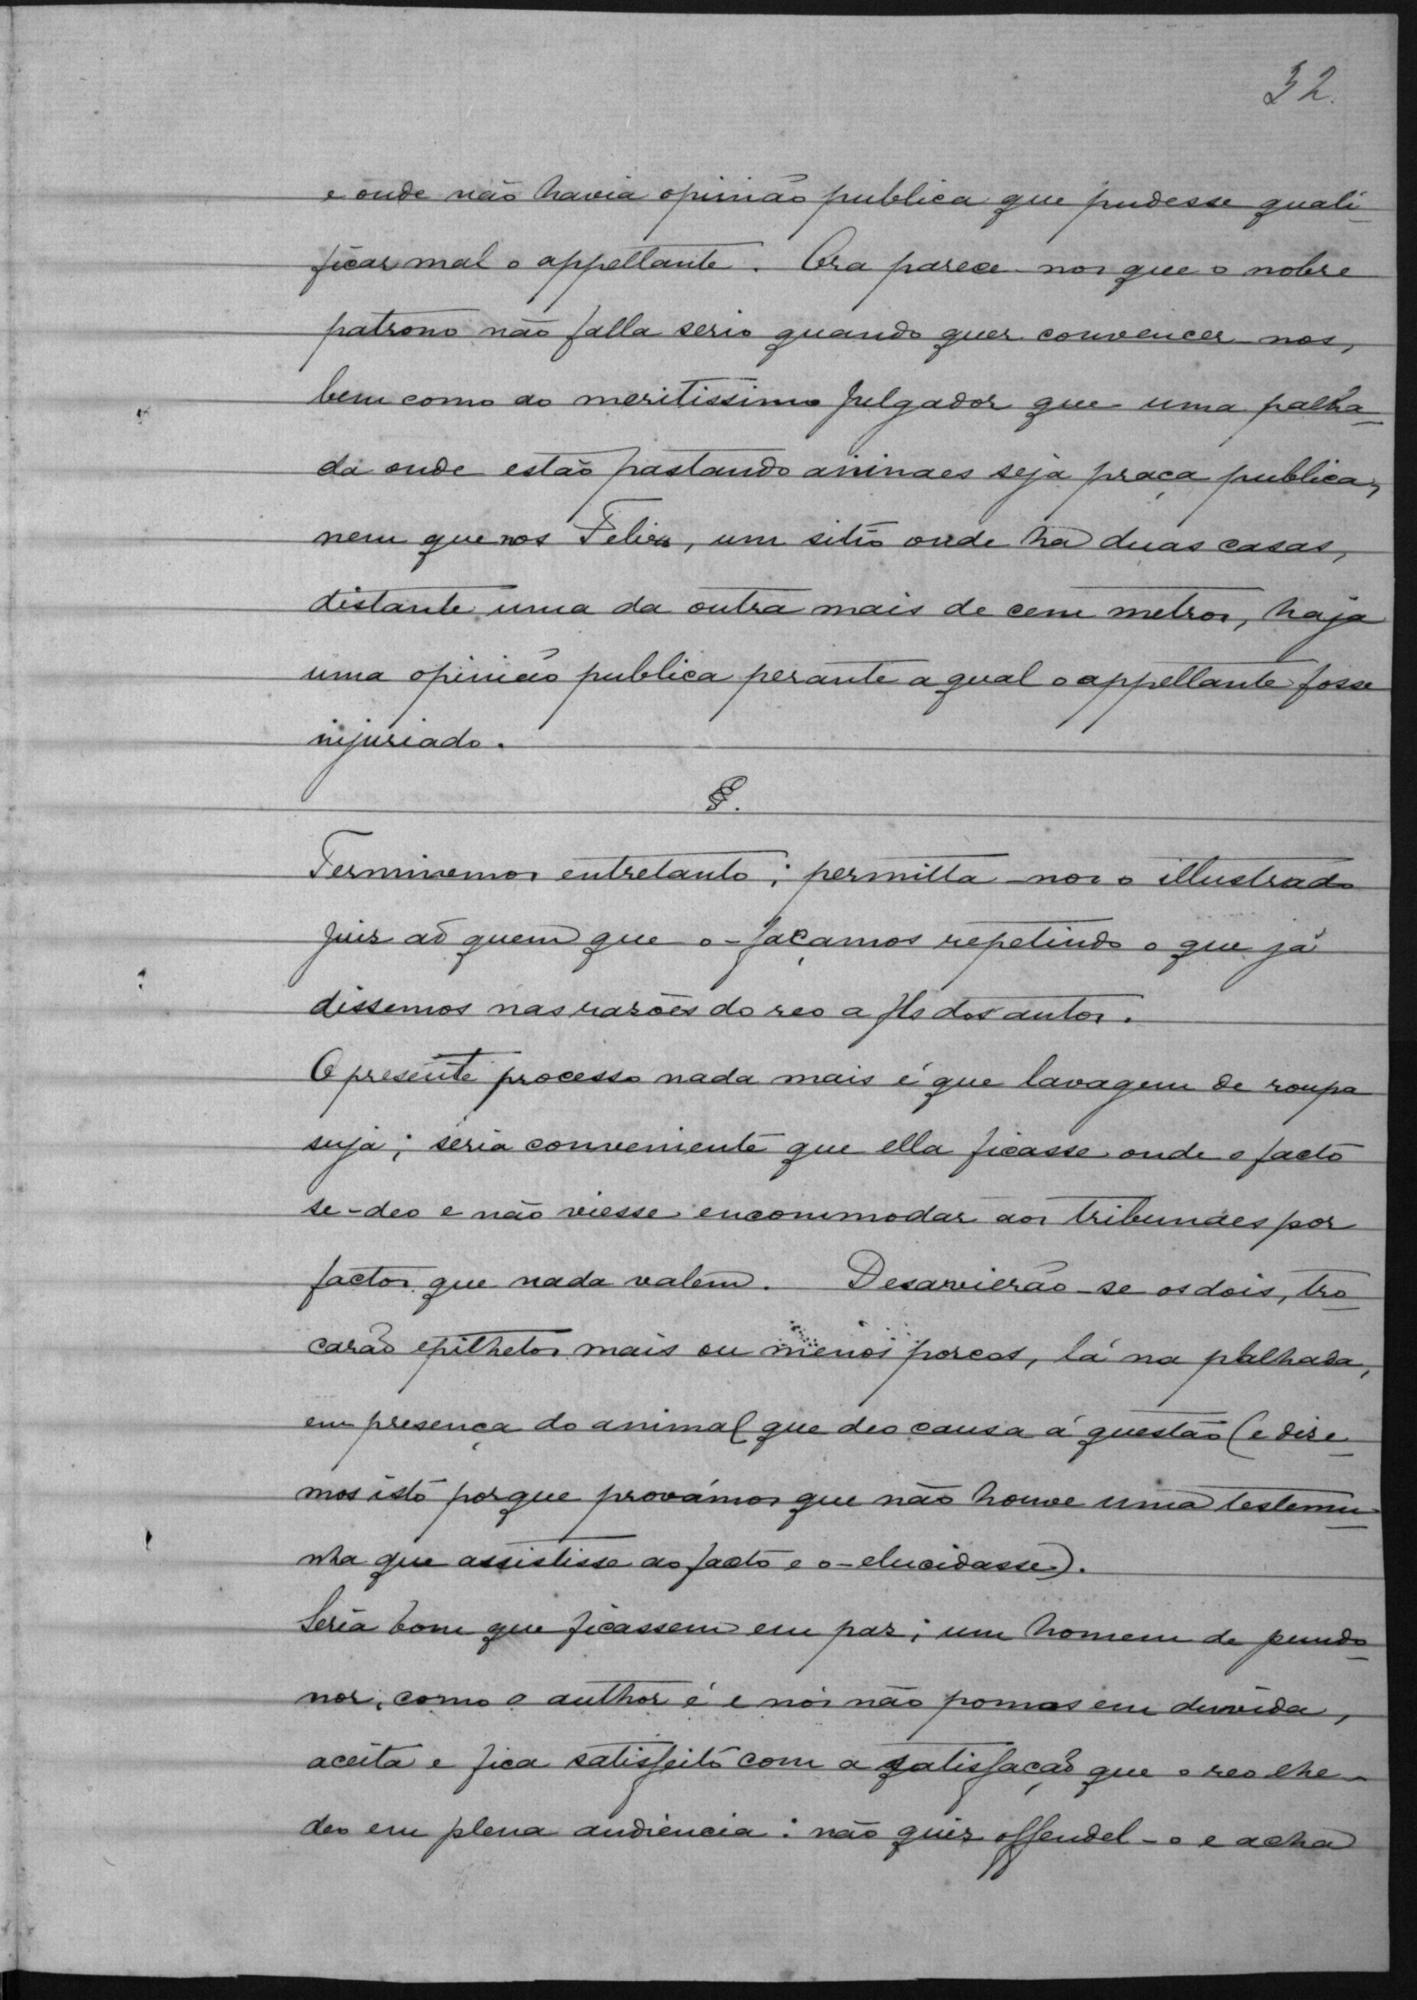 32.
e onde não havia opinião publica que pudesse quali-
ficar mal o appellante. Ora parece-nos que o nobre
patrono não falla serio quando quer convencer-nos,
bem como ao meritissimo julgador que uma palha-
da onde estão pastando animaes seja praça publica,
nem que nos Felix, um sitio onde ha duas casas,
distante uma da outra mais de cem metros, haja
uma opinião publica perante a qual o appellante fosse
injuriado.
§.
Terminemos entretanto; permitta-nos o illustrado
juiz ad quem que o-façamos repetindo o que já
dissemos nas rasões do reo a fls dos autos.
O presente processo nada mais é que lavagem de roupa
suja; seria conveniente que ella ficasse onde o facto
se-deo e não viesse encommodar aos tribunaes por
factos que nada valem. Desavierão-se os dois, tro-
carão epithetos mais ou menos porcos, lá na palhada,
em presença do animal que deo causa á questão (e dise-
mos isto porque provámos que não houve uma testemu-
nha que assistisse ao facto e o-elucidasse).
Seria bom que ficassem em paz; um homem de pundo-
nor, como o author é e nós não pomos em duvida,
aceita e fica satisfeito com a satisfação que o reo lhe-
deo em plena audiencia: não quiz offendel-o e acha